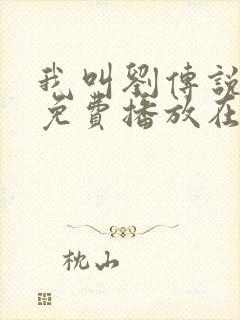 我叫劉傳說
免費播放在
枕山